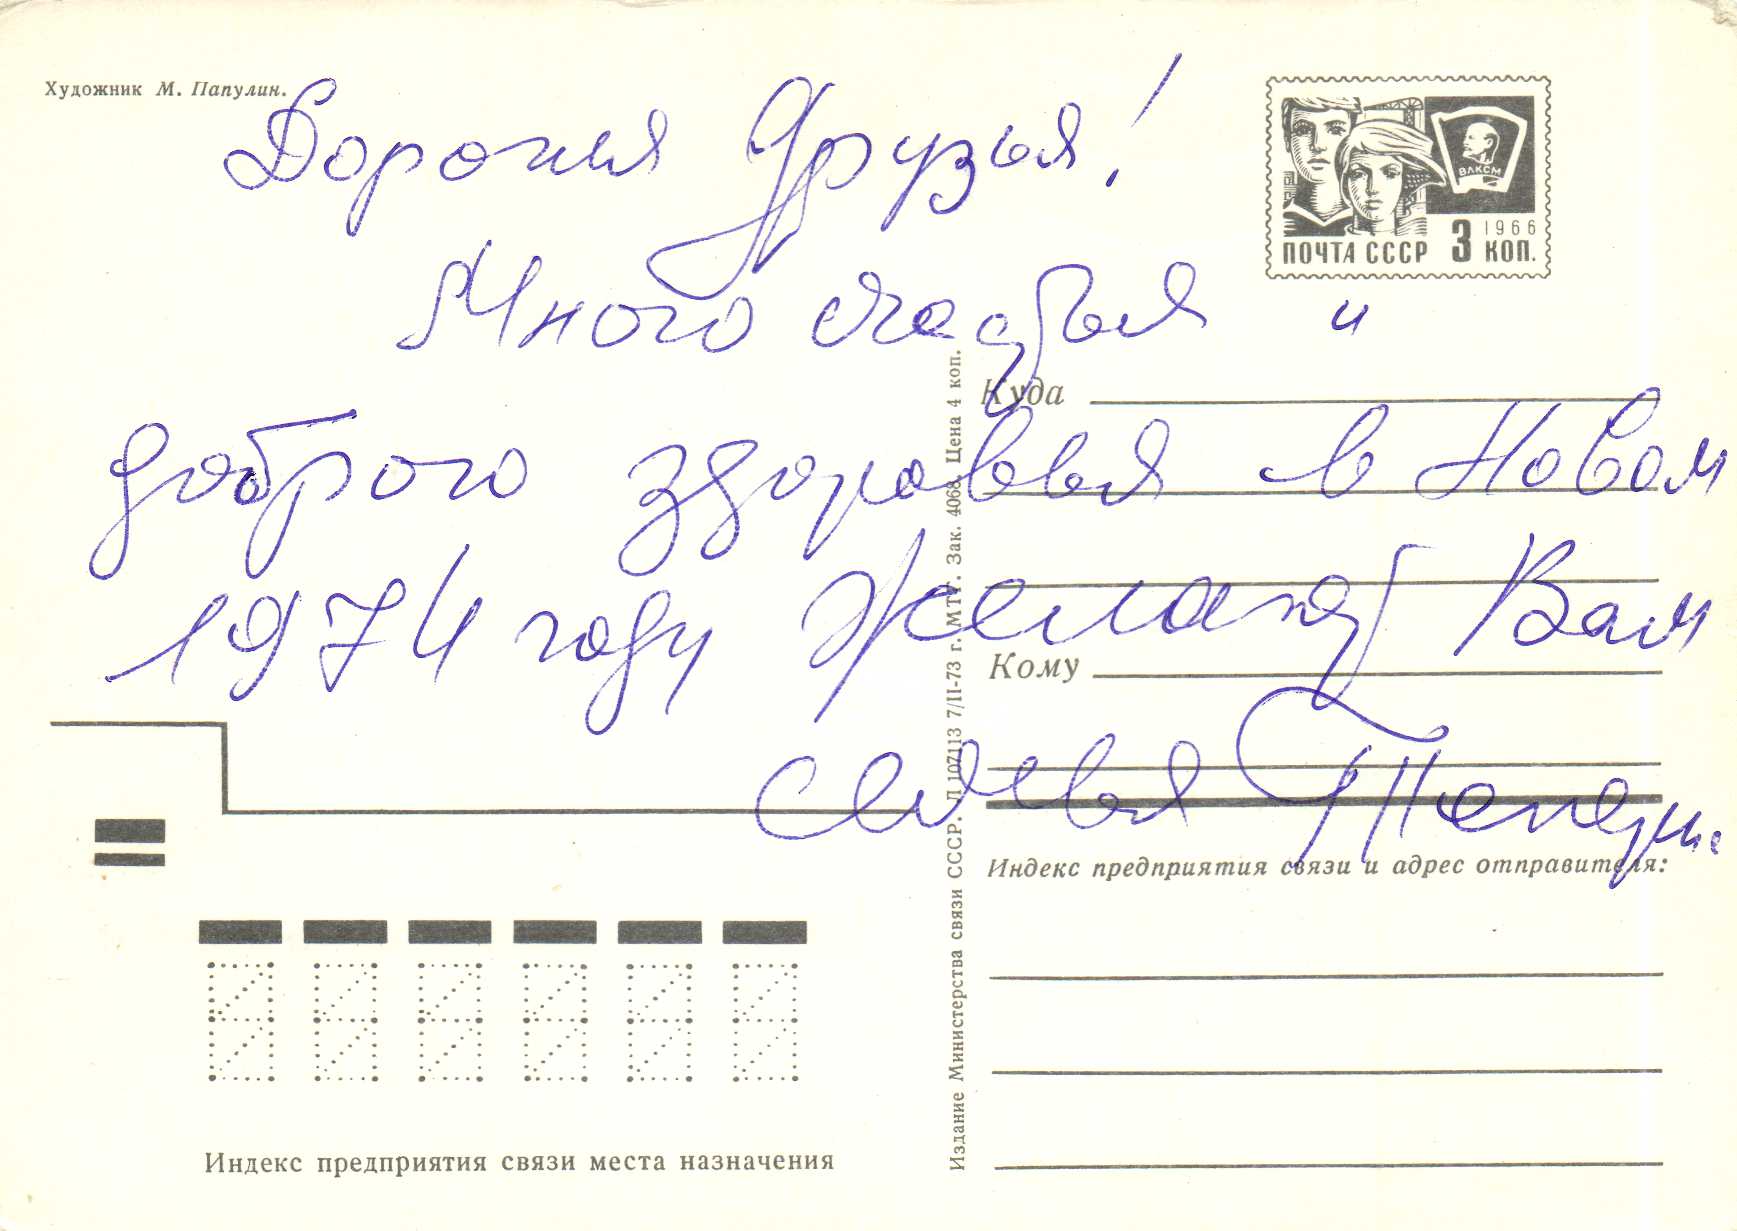 Художник М. Папулин.
Дорогия Друзья!
ВЛКСМ
1966
ПОЧТА СССР 3 КОП.
Много счастья и
доброго здоровья в Новом
1974 году желают Вам
семья
Куда
Кому
Индекс предприятия связи и адрес отправителя:
Издание Министерства связи СССР. Л 107113 7/II-73 г. МТГ. Зак. 4068. Цена 4 коп.
Индекс предприятия связи места назначения